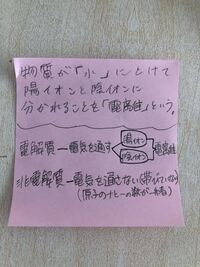 物質が「水」にとけて
陽イオンと陰イオンに
分かれることを「電離」という。
電解質ー電気を通す
陽イオン
陰イオン
電離
非電解質ー電気を通さない(帯びていない)
(原子の+と-の数が一緒)